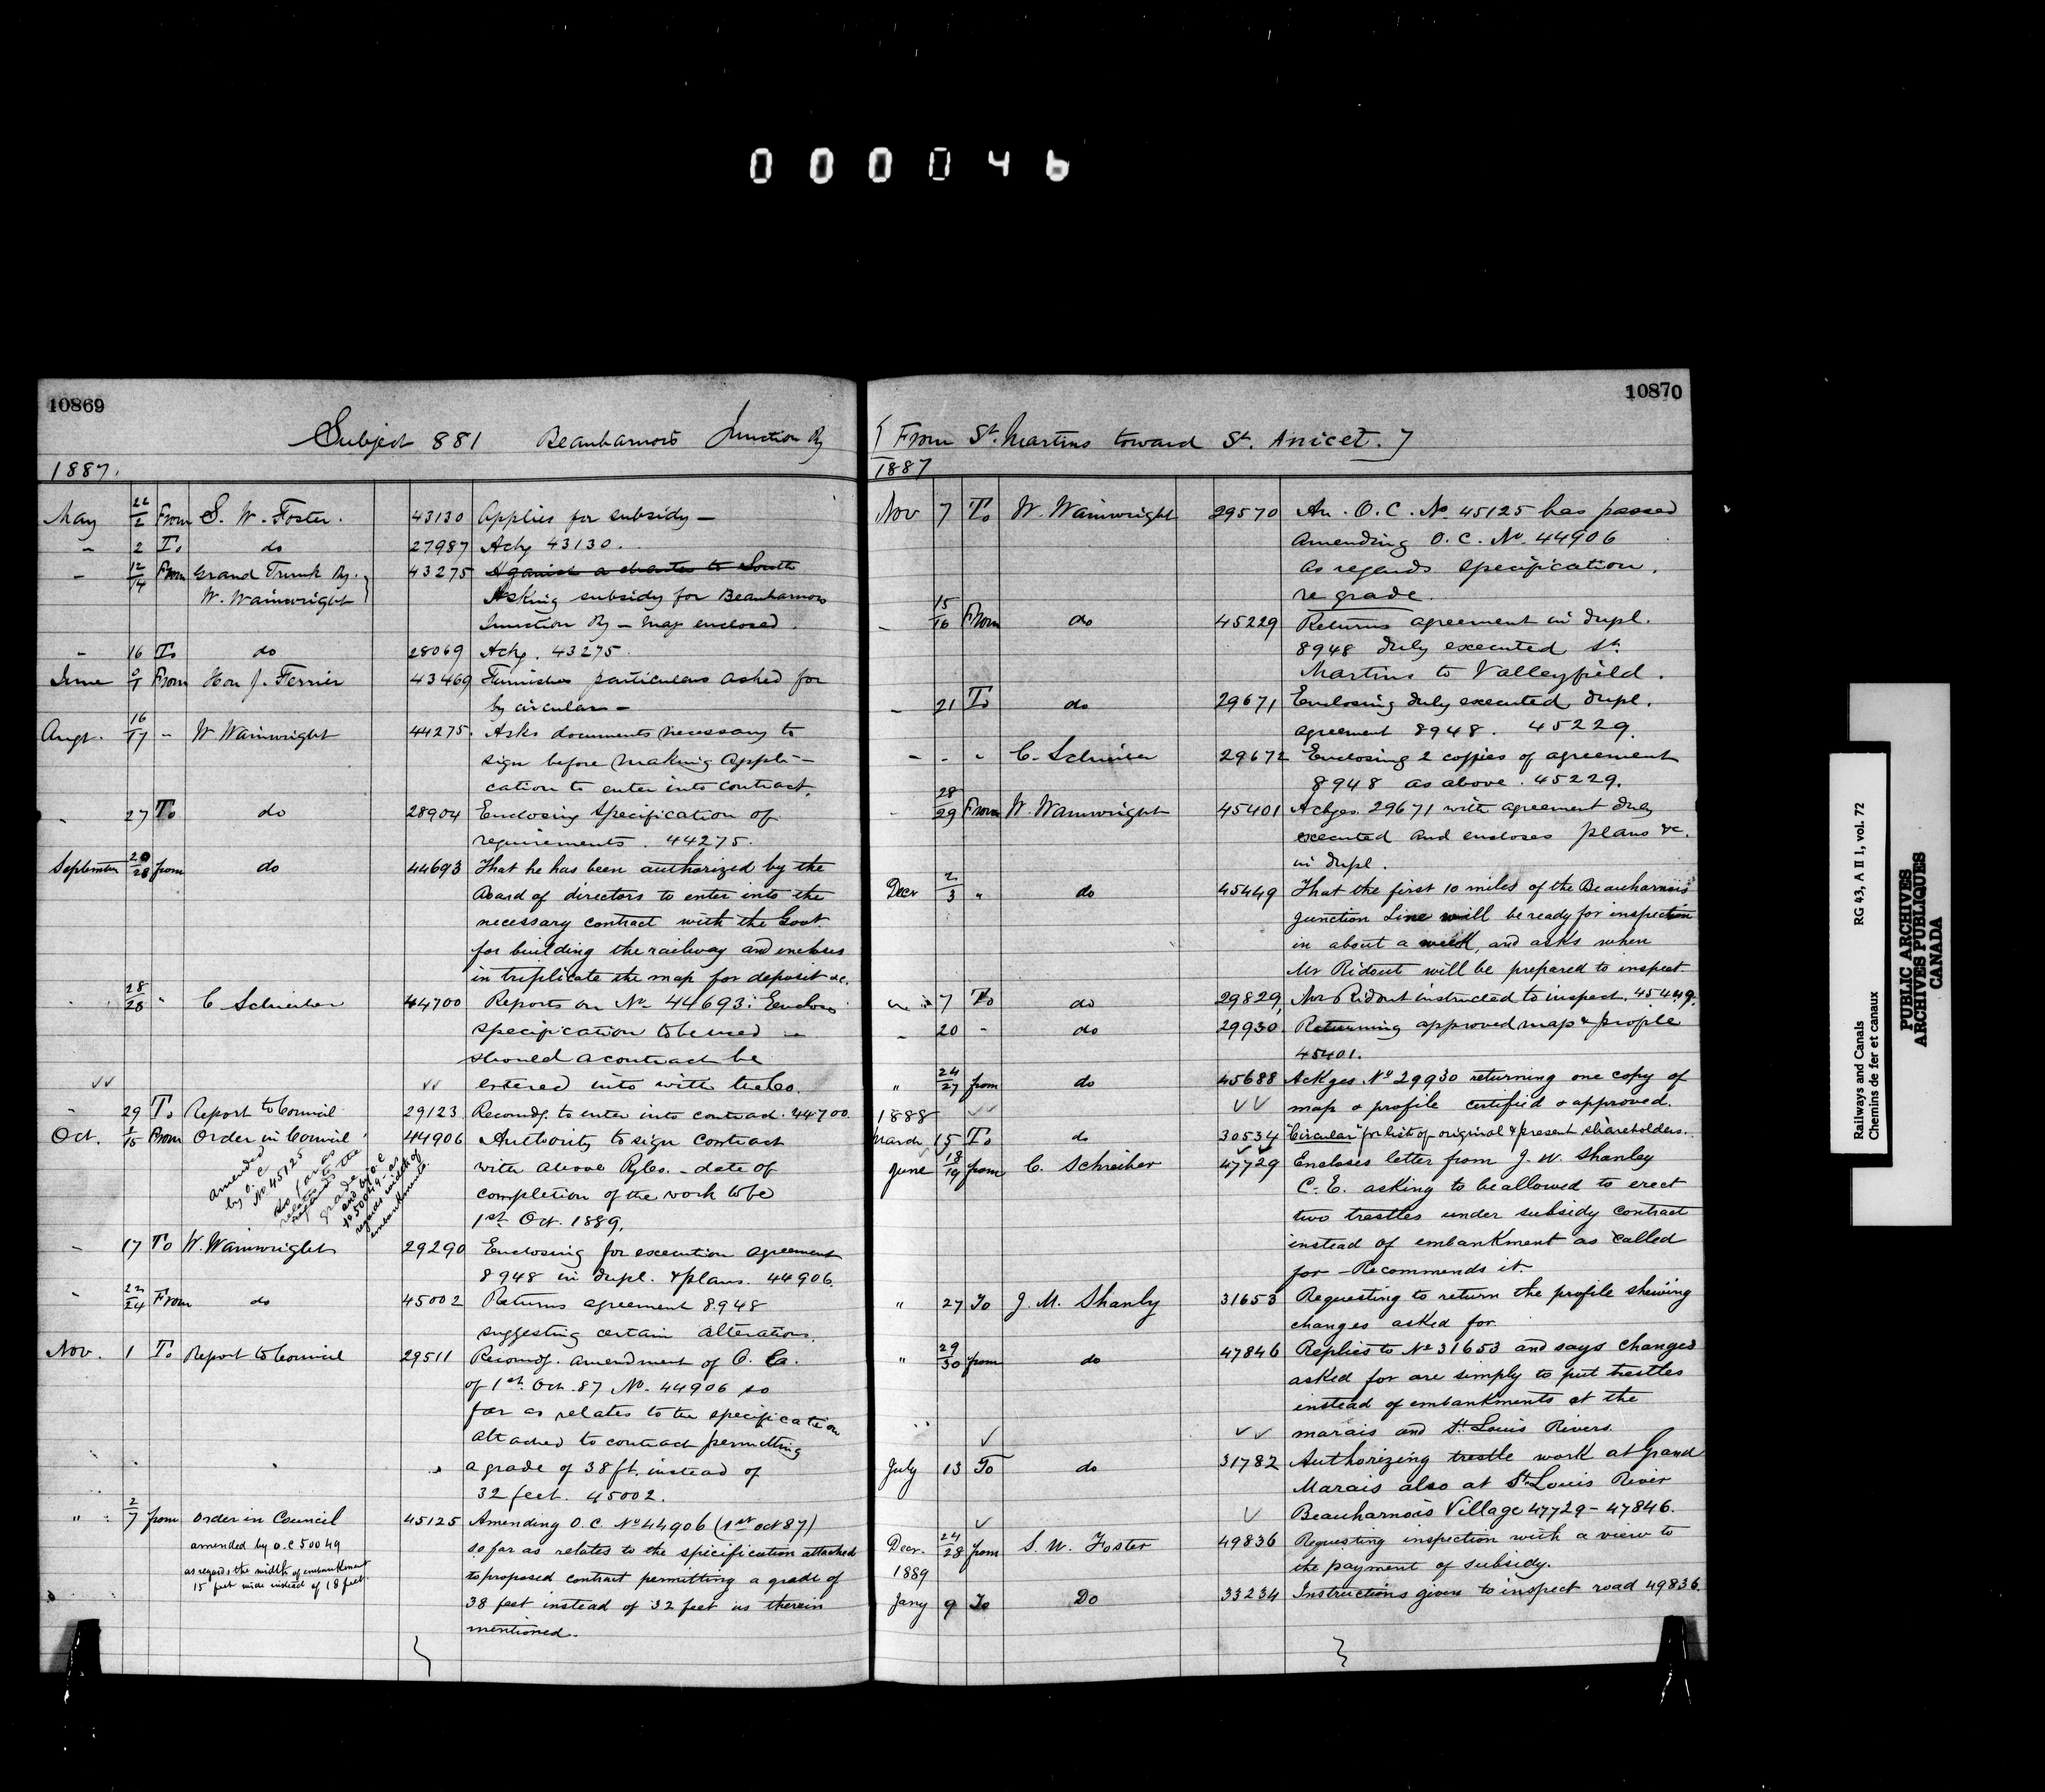 000046
10869
Subject 881 Beauharnois Junction Ry
1887.
May 22/2 From S. W. Foster. 43130 Applies for subsidy —
" 2 To do 27987 Ackg 43130.
" 12/14 From Grand Trunk Ry. 43275 Against a charter to South
W. Wainwright Asking subsidy for Beauharnois
Junction Ry — map enclosed.
" 16 To do 28069 Ackg. 43275.
June From Hon J. Ferrier 43469 Furnishes particulars asked for
by circular —
Augt. 16/17 " W Wainwright 44275. Asks documents necessary to
sign before making appli-
cation to enter into contract.
" 27 To do 28904 Enclosing specification of
requirements. 44275.
September 20/28 from do 44693 That he has been authorized by the
Board of directors to enter into the
necessary contract with the Govt.
for building the railway and encloses
in triplicate the map for deposit &c.
" 28/28 " C Schreiber 44700 Reports on No 44693: Encloses
specification to be used in
should a contract be
entered into with the Co.
" 29 To Report to Council 29123 Recomdg. to enter into contract. 44700.
Oct. 1/15 From Order in Council 44906 Authority to sign contract
with above Ry Co. — date of
completion of the work to be
1st Oct. 1889.
amended
by O.C
No 45125
so far as
relates to the
grade
and by O.C
No 50049 — as
regards width of
embankments.
" 17 To W. Wainwright 29290 Enclosing for execution agreement
8948 in dupl. & plans. 44906.
" 22/24 From do 45002 Returns agreement 8948
suggesting certain alterations.
Nov. 1 To Report to Council 29511 Recomdg. amendment of O. Co.
of 1st Oct. 87 No. 44906 so
far as relates to the specification
attached to contract permitting
a grade of 38 ft. instead of
32 feet. 45002.
" 2/7 from Order in Council 45125 Amending O.C. No 44906 (1st Oct 87)
amended by O.C 50049
as regards the width of embankment
15 feet wide instead of 18 feet.
so far as relates to the specification attached
to proposed contract permitting a grade of
38 feet instead of 32 feet as therein
mentioned.
10870
[From St. Martins toward St. Anicet.]
1887
Nov 7 To W. Wainwright 29570 An O.C. No. 45125 has passed
amending O.C. No. 44906
as regards specification.
re grade.
" 15/16 From do 45229 Returns agreement in dupl.
8948 duly executed St.
Martins to Valleyfield.
" 21 To do 29671 Enclosing duly executed dupl.
agreement 8948. 45229.
" " " C. Schreiber 29672 Enclosing 2 copies of agreement
8948 as above. 45229.
" 28/29 From W. Wainwright 45401 Ackges. 29671 with agreement duly
executed and encloses plans &c.
in dupl.
Decr 2/3 " do 45449 That the first 10 miles of the Beauharnois
Junction Line will be ready for inspection
in about a week, and asks when
Mr Ridout will be prepared to inspect.
" 7 To do 29829 Mr Ridout instructed to inspect. 45449.
" 20 " do 29930 Returning approved map & profile
45401.
" 24/27 from do 45688 Ackges No 29930 returning one copy of
map & profile certified & approved.
1888
March 15 To do 30534 "Circular" for list of original & present shareholders.
June 18/19 from C. Schreiber 47729 Encloses letter from J. W. Shanley
C.E. asking to be allowed to erect
two trestles under subsidy contract
instead of embankment as called
for — Recommends it.
" 27 To J. M. Shanly 31653 Requesting to return the profile shewing
changes asked for.
" 29/30 from do 47846 Replies to No 31653 and says changes
asked for are simply to put trestles
instead of embankments at the
marais and St. Louis Rivers.
July 13 To do 31782 Authorizing trestle work at Grand
Marais also at St. Louis River
Beauharnois Village 47729 - 47846.
Decr. 24/28 from S. W. Foster 49836 Requesting inspection with a view to
the payment of subsidy.
1889
Jany 9 To Do 33234 Instructions given to inspect road 49836.
Railways and Canals RG 43, A II 1, vol. 72
Chemins de fer et canaux
PUBLIC ARCHIVES
ARCHIVES PUBLIQUES
CANADA